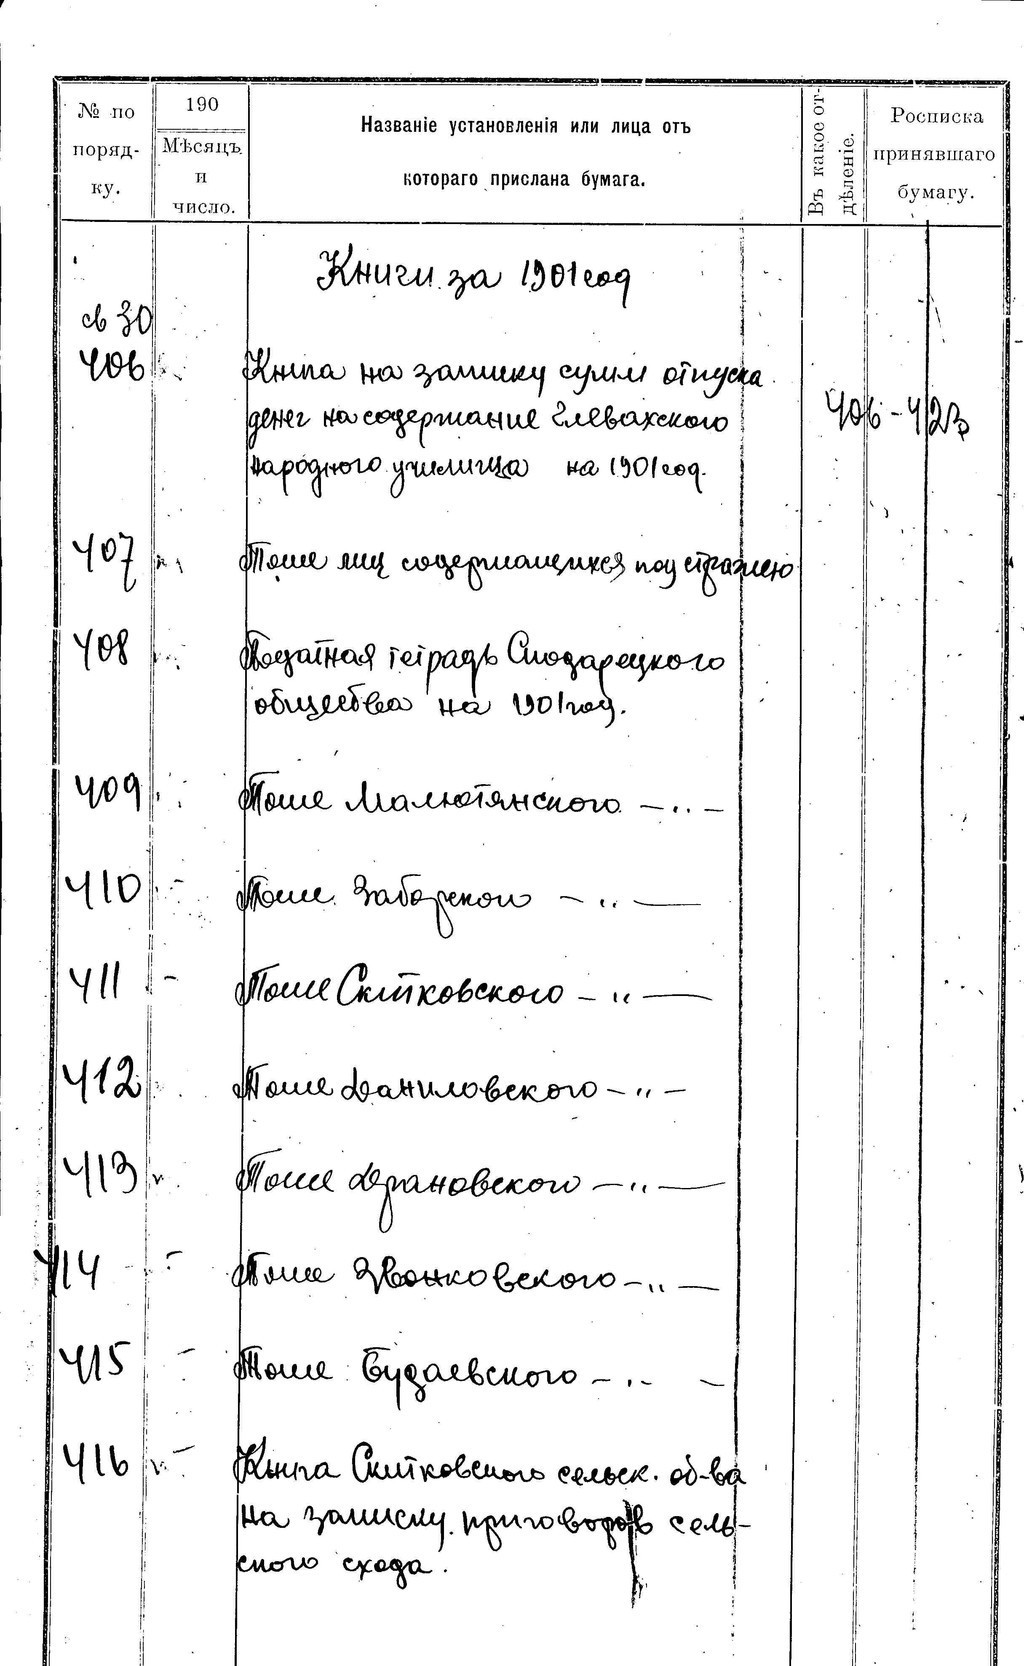 № по поряд-ку.
190
Мѣсяцъ и число.
Названіе установленія или лица отъ
котораго прислана бумага.
Въ какое от-дѣленіе.
Росписка принявшаго бумагу.
Книги за 1901 год
св 30
406 Книга на записку сумм отпуска
денег на содержание Глевахского
406-423
народного училища на 1901 год.
407 Тоже лиц содержащихся под стражею
408 Податная тетрадь
общества на 1901 год.
409 Тоже Малютянского -"-
410 Тоже Заборского -"-
411 Тоже Скитковского -"-
412 Тоже Даниловского -"-
413 Тоже -"-
414 Тоже Звонковского -"-
415 Тоже Будаевского -"-
416 Книга Скитковского сельск. об-ва
на записку приговоров сель-
ского схода.